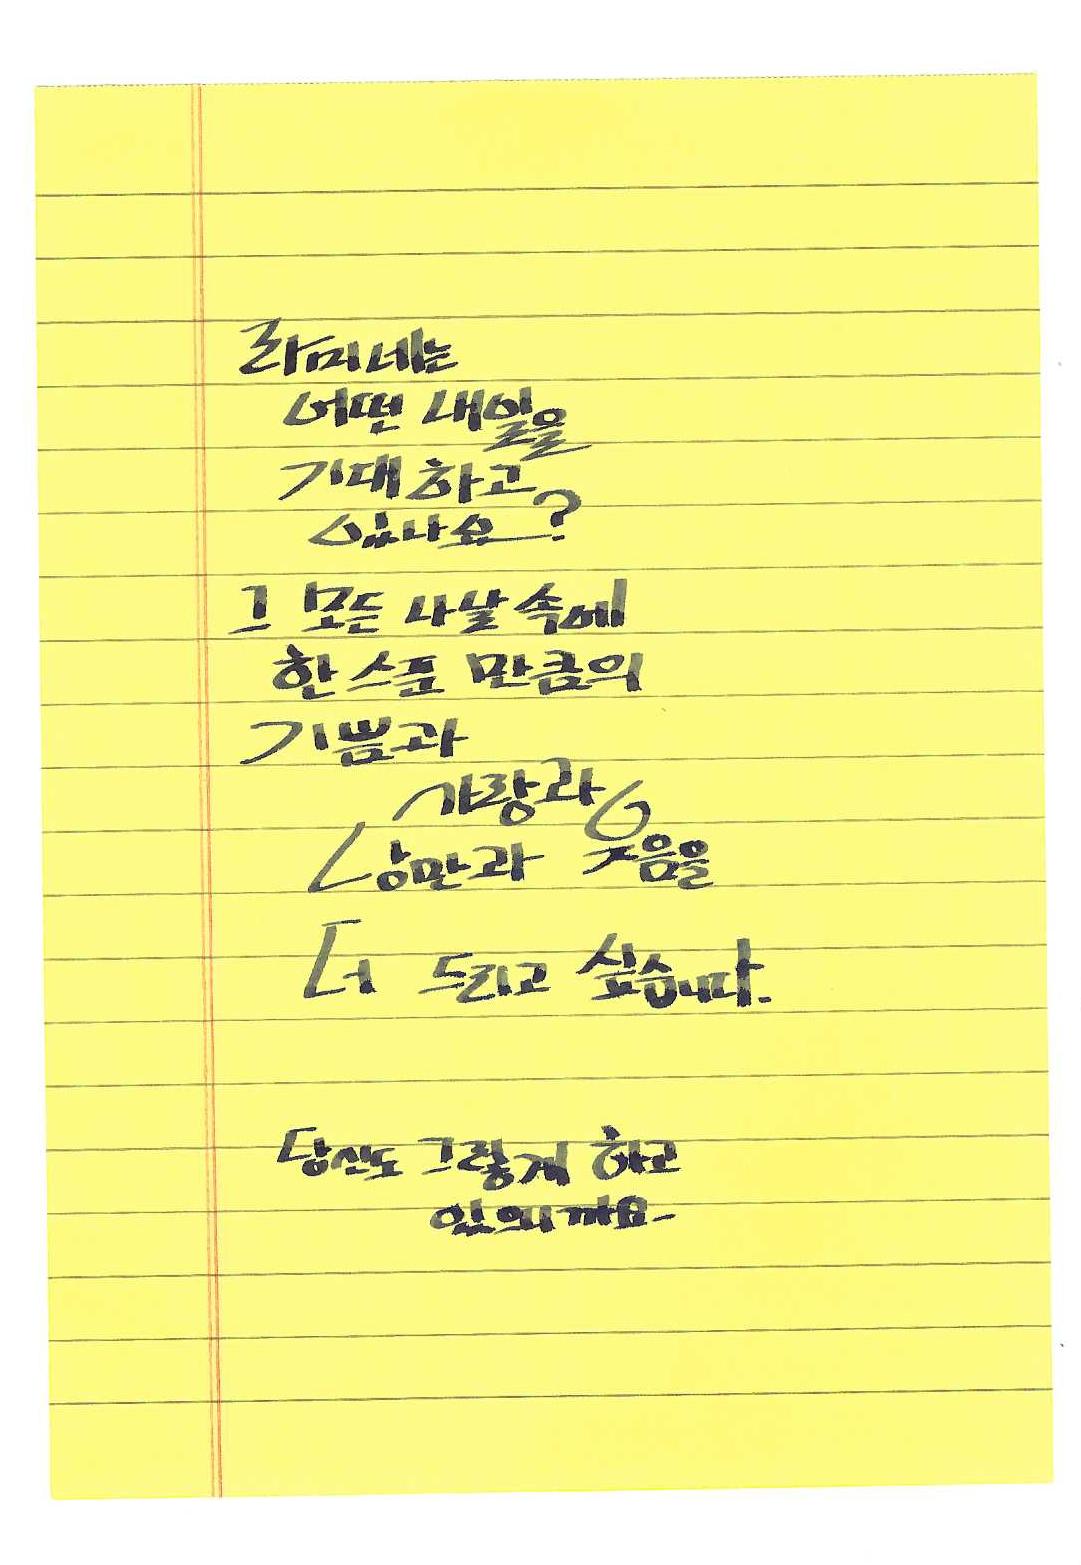 라미네는
어떤 내일을
기대하고
있나요?
그 모든 나날 속에
한 스푼 만큼의
기쁨과
사랑과
낭만과 웃음을
더 드리고 싶습니다.
당신도 그렇게 하고
있을까요